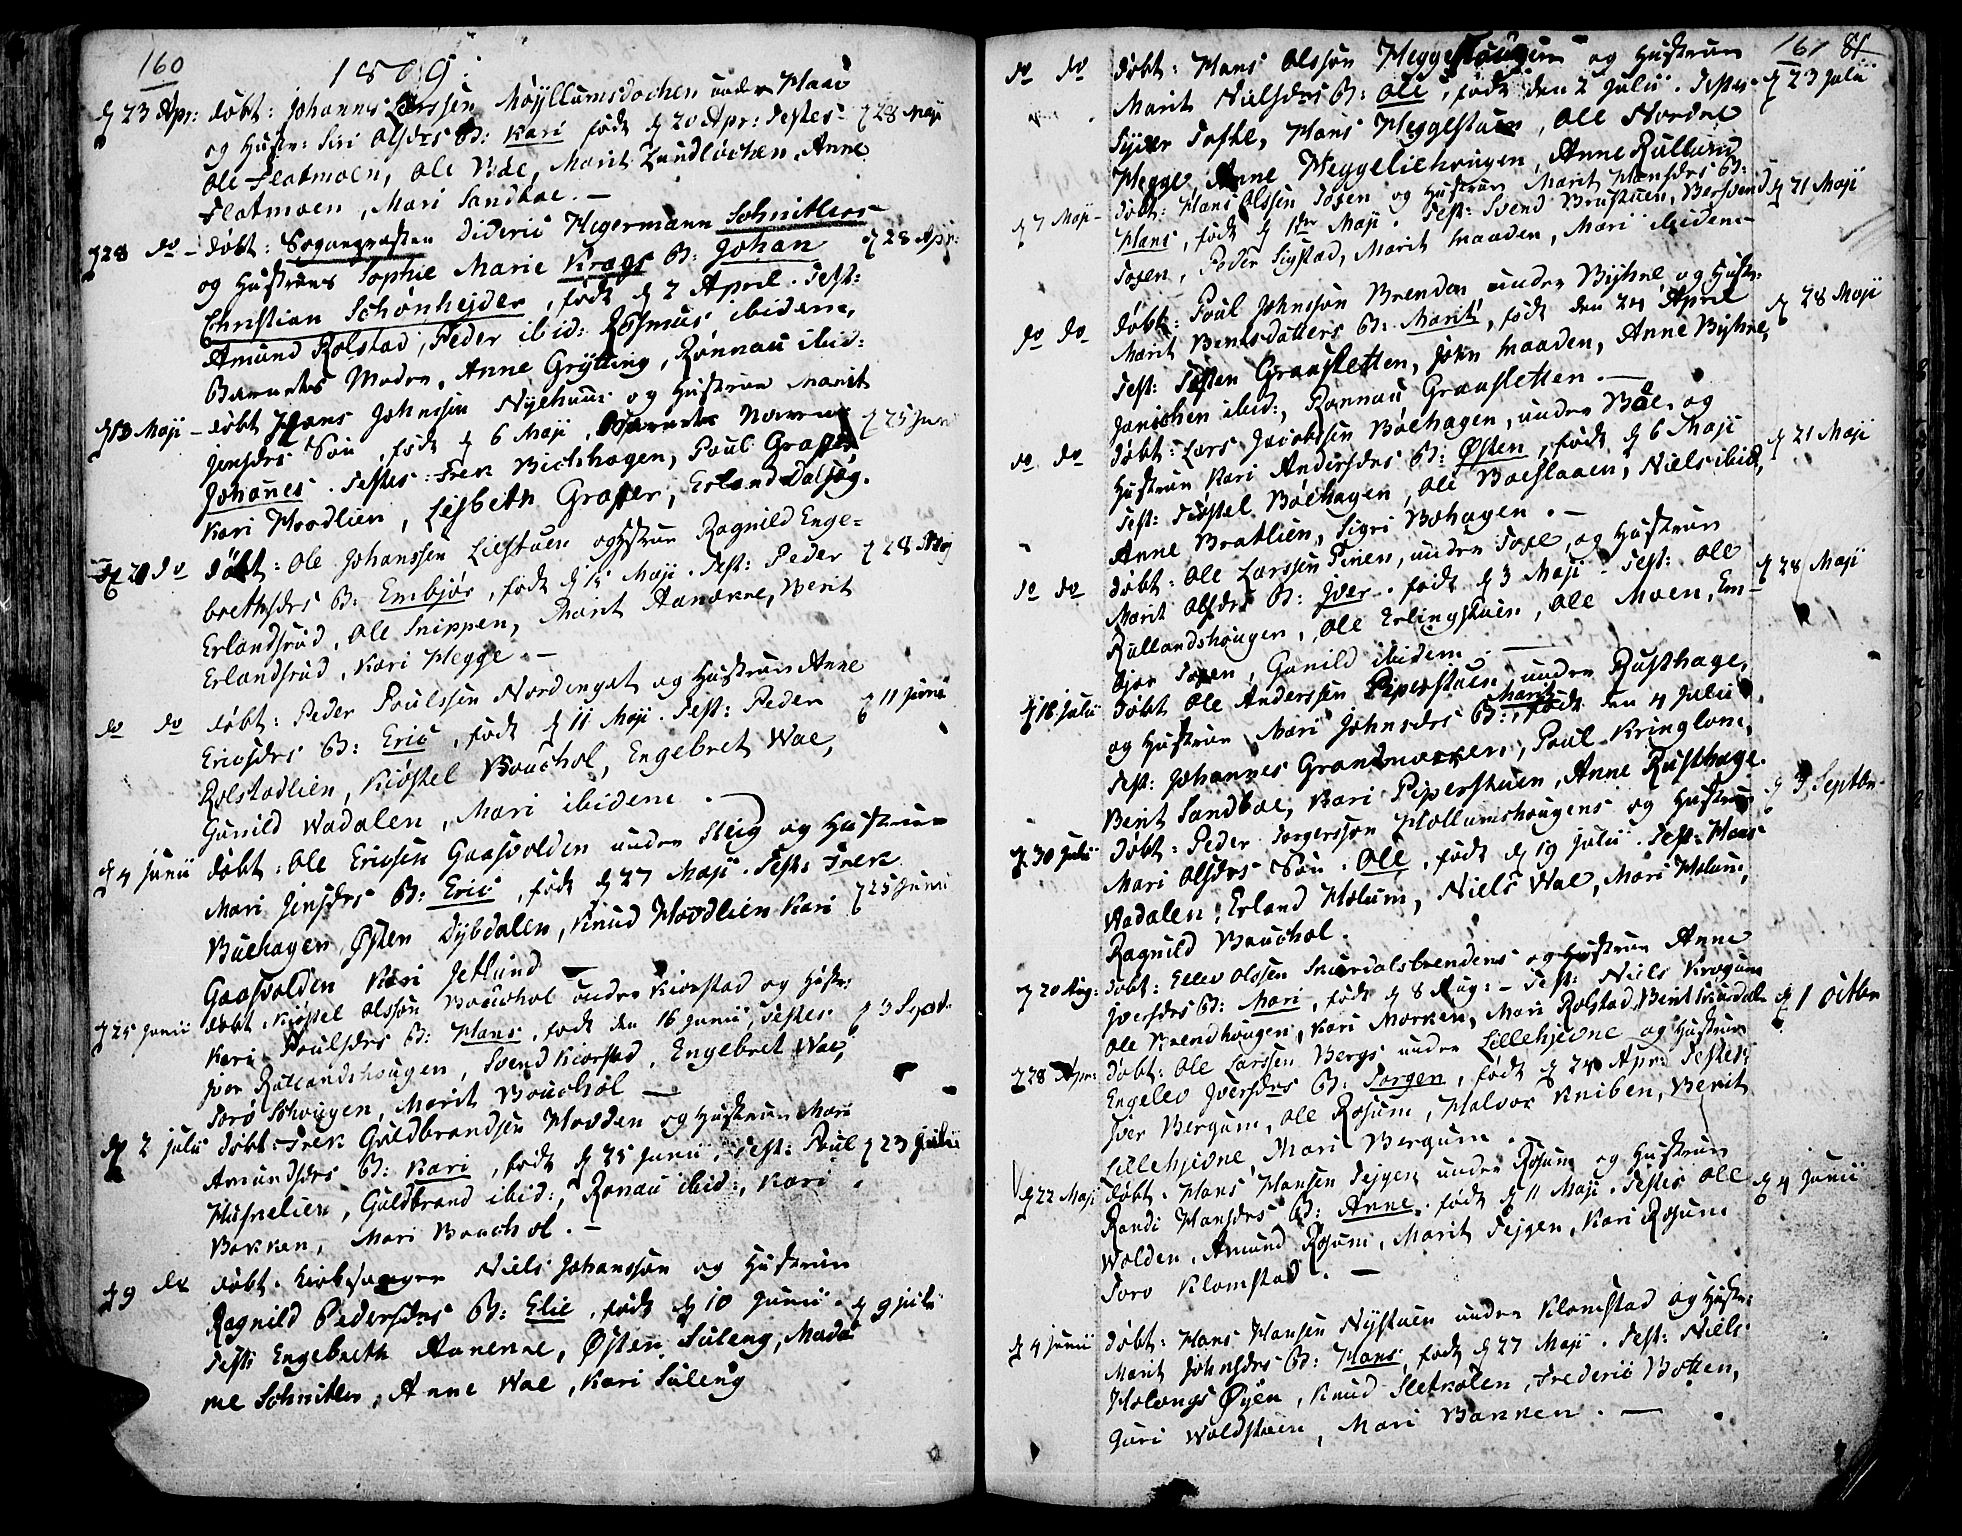 160
1809:
d 23 Apr: døbt: Johannes Larssen Møyllumsdochen under Haae
og Hustr: Siri Olsdrs B: Kari født d 20 Apr: Testes: d 28 Maji
Ole Flatmoen, Ole Bøe, Marit Lundlochen, Anne
Flatmoen, Mari Sandboe. —
d 28 do — døbt: Sogneprästen Dideric Hegermann Schnitlers
og Hustrues Sophie Marie Krags B: Johan d 28 Apr:
Christian Schönhejder, født d 2 April. Test:
Amund Rolstad, Peder ibid: Rasmus ibidem,
Barnets Moder, Anne Grytting, Rønnau ibid:
d 13 Maji — døbt Hans Johnsen Nyehuus og Hustrue Marit
Jensdrs Søn, født d 6 Maji, Barnets Navn d 25 Juni
Johannes. Testes: Frek Bichhagen, Poul Graffer
Kari Hovdlien, Lisbeth Graffer, Erland Dalsøg.
d 21 do døbt: Ole Johanssen Liestuen og Hustrue Ragnild Enge=
brethsdrs B: Embjør, født d 15 Maji. Test: Peder d 28 Maji
Erlandsrud, Ole Snippen, Marit Aanekne, Berit
Erlandsrud, Kari Hegge. —
do do døbt: Peder Poulssen Nordengat og Hustrue Anne
Ericsdrs B: Eric, født d 11 Maji. Test: Peder d 11 Junii
Rolstadlien, Kiøstel Bouchol, Engebret Wae,
Gunild Wadalen, Mari ibidem.
d 4 Junii døbt: Ole Ericsen Gaasvolden under Steig og Hustrue
Mari Jensdrs B: Eric, født d 27 Maji. Test: Frek
Buehagen, Østen Dybdalen, Knud Hovdlien Kari d 25 Junii
Gaasvolden Kari Jetlund —
d 25 Junii døbt: Kiøstel Olssøn Bouchol under Kiorstad og Hustr:
Kari Poulsdrs B: Hans, født den 16 Junii, Testes. d 3 Sept.
Iver Rullandshougen, Svend Kiorstad, Engebret Wae,
Toro Schougen, Marit Bouchol —
d 2 Julii døbt: Frek Guldbrandsen Hovden og Hustrue Mari
Amundsdrs B: Kari, født d 25 Junii. Test: Poul d 23 Julii
Husnelien, Guldbrand ibid:, Ronau ibid:, Kari
Bakken, Mari Bouchol. —
d 9 do døbt. Kirkesanger Niels Johanssøn og Hustrue
Ragnild Pedersdrs B: Elie, født d 10 Junii. d 9 Julii
Test: Engebreth Aanekne, Østen Suleng, Mada
me Schnitler, Anne Wae, Kari Suleng
161 81
do do døbt: Hans Olssøn Heggestaugen og Hustrue
Marit Nielsdrs B: Ole, født den 2 Julii. Testes d 23 Julii
Syver Tofte, Hans Heggestuen, Ole Nordre
Hegge, Anne Heggeliehougen, Anne Rullund
d 7 Maji — døbt: Hans Olssen Toxen og Hustrue Marit Hansdrs B:
Hans, født d 1ste Maji. Test: Svend Brustuen, Bersvend d 21 Maji
Toxen, Peder Sigstad, Marit Maaden, Mari ibidem —
do do døbt: Poul Johnssøn Brenden under Byhre og Hustr:
Marit Bentsdatters B: Marit, født den 24 April d 28 Maji
Test: Østen Graasletten, John Maaden, Anne Byhre,
Janichen ibid:, Rønnau Graasletten. —
do do døbt: Lars Jacobssen Bøehagen, under Bøe, og
Hustrue Kari Andersdrs B: Østen, født d 6 Maji d 21 Maji
Test: Kiøstel Bøehagen, Ole Boeslaaen, Niels ibid,
Anne Bratlien, Sigri Bøhagen. —
do do døbt: Ole Larssen Pinen, under Toxe, og Hustrue
Marit Olsdrs B: Iver. født d 3 Maji — Test: Ole d 28 Maji
Rullandshougen, Ole Erlingstuen, Ole Moen, Em-
bjør Toxen, Gunild ibidem. —
d 16 Julii døbt Ole Anderssen Piperstuen under Rusthage,
og Hustrue Mari Johnsdrs B: Marit, født den 4 Julii
Test: Johannes Grandmoekken, Poul Kringlom,
Berit Sandboe, Kari Piperstuen, Anne Rusthage.
d 30 Julii døbt: Peder Torgerssøn Hollumshougens og Hustrue d 3 Septbr.
Mari Olsdrs Søn: Ole, født d 19 Julii. Test: Hans
Aadalen, Erland Holum, Niels Wae, Mari Holum,
Ragnild Bouchol.
d 20 Aug: døbt: Ellev Olssen Snurdalsbrendens og Hustrue Anne
Iversdrs B: Mari, født d 8 Aug: — Test: Niels Krogum
Ole Krendhougen, Kari Morken, Mari Rolstad, Berit Snurdalen d 1 Octbr
d 28 Apr: døbt: Ole Larssen Bergs under Lillehjevne og Hustrue
Engelev Iversdrs B: Torgen, født d 24 Apr: Testes:
Iver Bergum, Ole Rosum, Halvor Kniben, Berit
Lillehjevne, Mari Bergum.
d 22 Maji døbt. Hans Hansen Tejgen under Rosum og Hustrue
Randi Hansdrs B: Anne, født d 11 Maji. Testes Ole d 4 Junii
Wolden, Amund Rosum, Marit Tejgen, Kari Rosum
Toro Klomstad. —
d 4 Junii døbt: Hans Hansen Nystuen under Klomstad og Hustr:
Marit Johnsdrs B: Hans, født d 27 Maji. Test: Niels
Holongs Øyen, Knud Sletkolen, Frederic Botten,
Guri Woldstuen, Mari Bakken. —